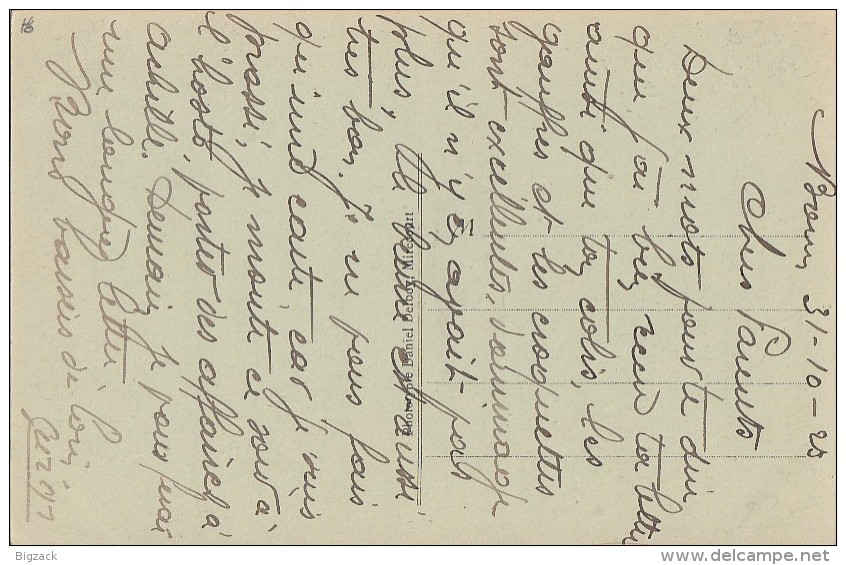 31-10-25
Chers Parents
Deux mots pour te dire
que j'ai bien reçu ta lettre
ainsi que ton colis, les
gauffres et les croquettes
sont excellentes, dommage
qu'il n'y en avait pas
plus, le beurre est aussi
très bon. Je ne vous fais
qu'une carte, car je suis
pressé, je monte ce soir à
l'hosto, porter des affaires à
Achille. Demain, je vous ferai
une longue lettre
Bons baisers de loin
Photographe Daniel Delboy, Mirecourt
Bigzack
delcampe.net